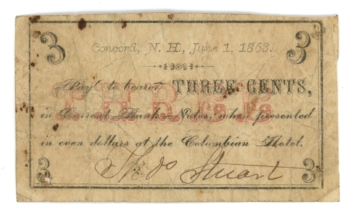 3 3
Concord, N. H., June 1, 1863.
Pay to bearer THREE CENTS,
in Current Bank Notes, when presented
in even dollars at the Columbian Hotel.
3 Stuart 3